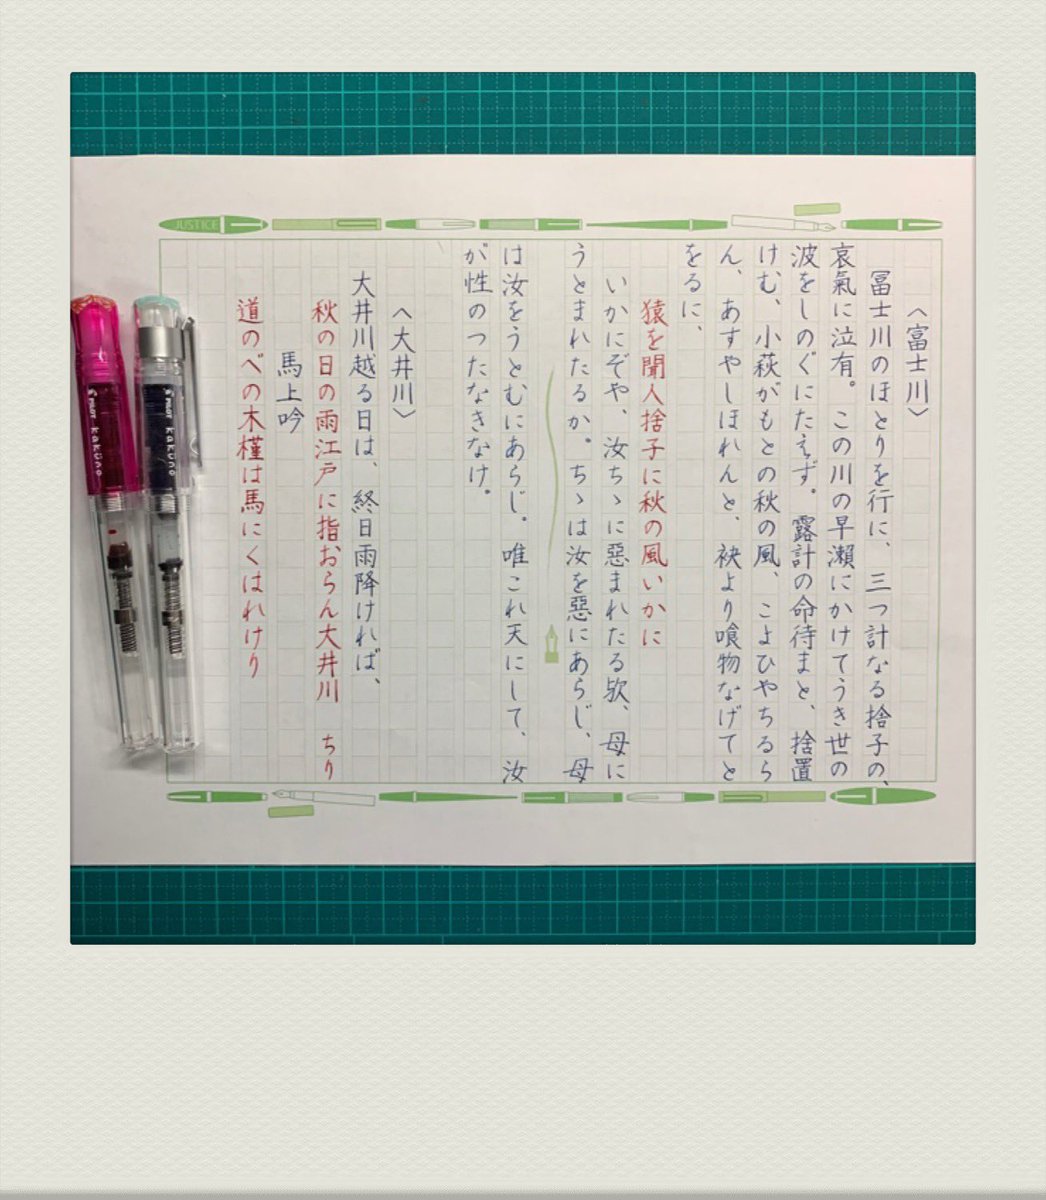 〈富士川〉
冨士川のほとりを行に、三つ計なる捨子の、
哀氣に泣有。この川の早瀬にかけてうき世の
波をしのぐにたえず。露計の命待まと、捨置
けむ、小萩がもとの秋の風、こよひやちるら
ん、あすやしほれんと、袂より喰物なげてと
をるに、
猿を聞人捨子に秋の風いかに
いかにぞや、汝ちゝに惡まれたる欤、母に
うとまれたるか。ちゝは汝を惡にあらじ、母
は汝をうとむにあらじ。唯これ天にして、汝
が性のつたなきなけ。
〈大井川〉
大井川越る日は、終日雨降ければ、
秋の日の雨江戸に指おらん大井川 ちり
馬上吟
道のべの木槿は馬にくはれけり
JUSTICE
PILOT kaküno
PILOT kaküno